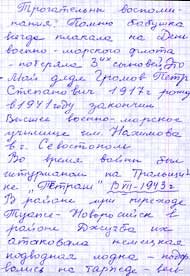 Трогательны воспоми-
нания! Помню бабушка
всегда плакала на День
военно-морского флота
- потеряла 3ых сыновей.
- Мой дядя Громов Петр
Степанович 1917г рожд
в 1941 году закончил
Высшее военно-морское
училище им. Нахимова
в г. Севастополь
Во время войны был
штурманом на Тральщи-
ке "Петраш" В III-1943г.
В районе при переходе
Туапсе - Новороссийск в
районе Джубга их
атаковала немецкая
подводная лодка - подор-
вались на торпеде